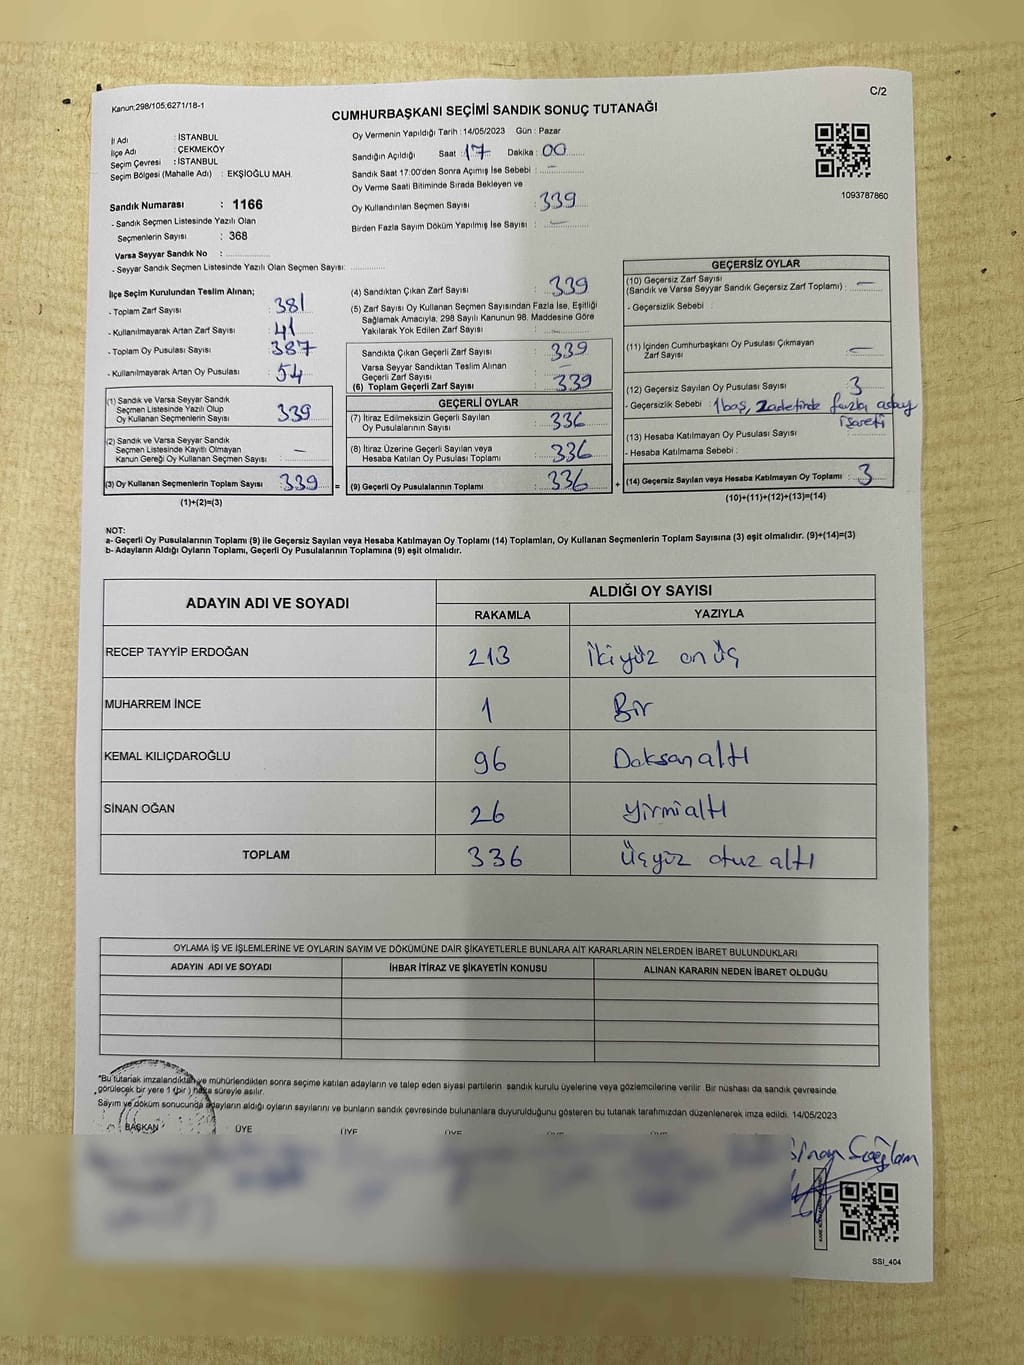 Kanun:298/105;6271/18-1
C/2
CUMHURBAŞKANI SEÇİMİ SANDIK SONUÇ TUTANAĞI
İl Adı : İSTANBUL
İlçe Adı : ÇEKMEKÖY
Seçim Çevresi : İSTANBUL
Seçim Bölgesi (Mahalle Adı) : EKŞİOĞLU MAH.
Sandık Numarası : 1166
- Sandık Seçmen Listesinde Yazılı Olan
Seçmenlerin Sayısı : 368
Varsa Seyyar Sandık No :
- Seyyar Sandık Seçmen Listesinde Yazılı Olan Seçmen Sayısı:
Oy Vermenin Yapıldığı Tarih : 14/05/2023 Gün : Pazar
Sandığın Açıldığı Saat : 17 Dakika : 00
Sandık Saat 17:00'den Sonra Açımış İse Sebebi : -
Oy Verme Saati Bitiminde Sırada Bekleyen ve
Oy Kullandırılan Seçmen Sayısı : 339
Birden Fazla Sayım Döküm Yapılmış İse Sayısı : -
1093787860
İlçe Seçim Kurulundan Teslim Alınan;
- Toplam Zarf Sayısı : 381
- Kullanılmayarak Artan Zarf Sayısı : 41
- Toplam Oy Pusulası Sayısı : 387
- Kullanılmayarak Artan Oy Pusulası : 54
(1) Sandık ve Varsa Seyyar Sandık
Seçmen Listesinde Yazılı Olup
Oy Kullanan Seçmenlerin Sayısı : 339
(2) Sandık ve Varsa Seyyar Sandık
Seçmen Listesinde Kayıtlı Olmayan
Kanun Gereği Oy Kullanan Seçmen Sayısı : -
(3) Oy Kullanan Seçmenlerin Toplam Sayısı : 339 =
(1)+(2)=(3)
(4) Sandıktan Çıkan Zarf Sayısı : 339
(5) Zarf Sayısı Oy Kullanan Seçmen Sayısından Fazla İse, Eşitliği
Sağlamak Amacıyla; 298 Sayılı Kanunun 98. Maddesine Göre
Yakılarak Yok Edilen Zarf Sayısı : -
Sandıkta Çıkan Geçerli Zarf Sayısı : 339
Varsa Seyyar Sandıktan Teslim Alınan
Geçerli Zarf Sayısı : -
(6) Toplam Geçerli Zarf Sayısı : 339
GEÇERLİ OYLAR
(7) İtiraz Edilmeksizin Geçerli Sayılan
Oy Pusulalarının Sayısı : 336
(8) İtiraz Üzerine Geçerli Sayılan veya
Hesaba Katılan Oy Pusulası Toplamı : 336
(9) Geçerli Oy Pusulalarının Toplamı : 336 +
GEÇERSİZ OYLAR
(10) Geçersiz Zarf Sayısı
(Sandık ve Varsa Seyyar Sandık Geçersiz Zarf Toplamı) : -
- Geçersizlik Sebebi :
(11) İçinden Cumhurbaşkanı Oy Pusulası Çıkmayan
Zarf Sayısı : -
(12) Geçersiz Sayılan Oy Pusulası Sayısı : 3
- Geçersizlik Sebebi : 1 boş, 2 adetinde fazla aday
işareti
(13) Hesaba Katılmayan Oy Pusulası Sayısı :
- Hesaba Katılmama Sebebi :
(14) Geçersiz Sayılan veya Hesaba Katılmayan Oy Toplamı : 3
(10)+(11)+(12)+(13)=(14)
NOT:
a- Geçerli Oy Pusulalarının Toplamı (9) ile Geçersiz Sayılan veya Hesaba Katılmayan Oy Toplamı (14) Toplamları, Oy Kullanan Seçmenlerin Toplam Sayısına (3) eşit olmalıdır. (9)+(14)=(3)
b- Adayların Aldığı Oyların Toplamı, Geçerli Oy Pusulalarının Toplamına (9) eşit olmalıdır.
ADAYIN ADI VE SOYADI
ALDIĞI OY SAYISI
RAKAMLA YAZIYLA
RECEP TAYYİP ERDOĞAN 213 İkiyüz onüç
MUHARREM İNCE 1 Bir
KEMAL KILIÇDAROĞLU 96 Doksanaltı
SİNAN OĞAN 26 Yirmialtı
TOPLAM 336 Üçyüz otuz altı
OYLAMA İŞ VE İŞLEMLERİNE VE OYLARIN SAYIM VE DÖKÜMÜNE DAİR ŞİKAYETLERLE BUNLARA AİT KARARLARIN NELERDEN İBARET BULUNDUKLARI
ADAYIN ADI VE SOYADI İHBAR İTİRAZ VE ŞİKAYETİN KONUSU ALINAN KARARIN NEDEN İBARET OLDUĞU
"Bu tutanak imzalandıktan ve mühürlendikten sonra seçime katılan adayların ve talep eden siyasi partilerin sandık kurulu üyelerine veya gözlemcilerine verilir. Bir nüshası da sandık çevresinde
görülecek bir yere 1 (bir) hafta süreyle asılır.
Sayım ve döküm sonucunda adayların aldığı oyların sayılarını ve bunların sandık çevresinde bulunanlara duyurulduğunu gösteren bu tutanak tarafımızdan düzenlenerek imza edildi. 14/05/2023
BAŞKAN ÜYE ÜYE ÜYE ÜYE ÜYE
SSI_404